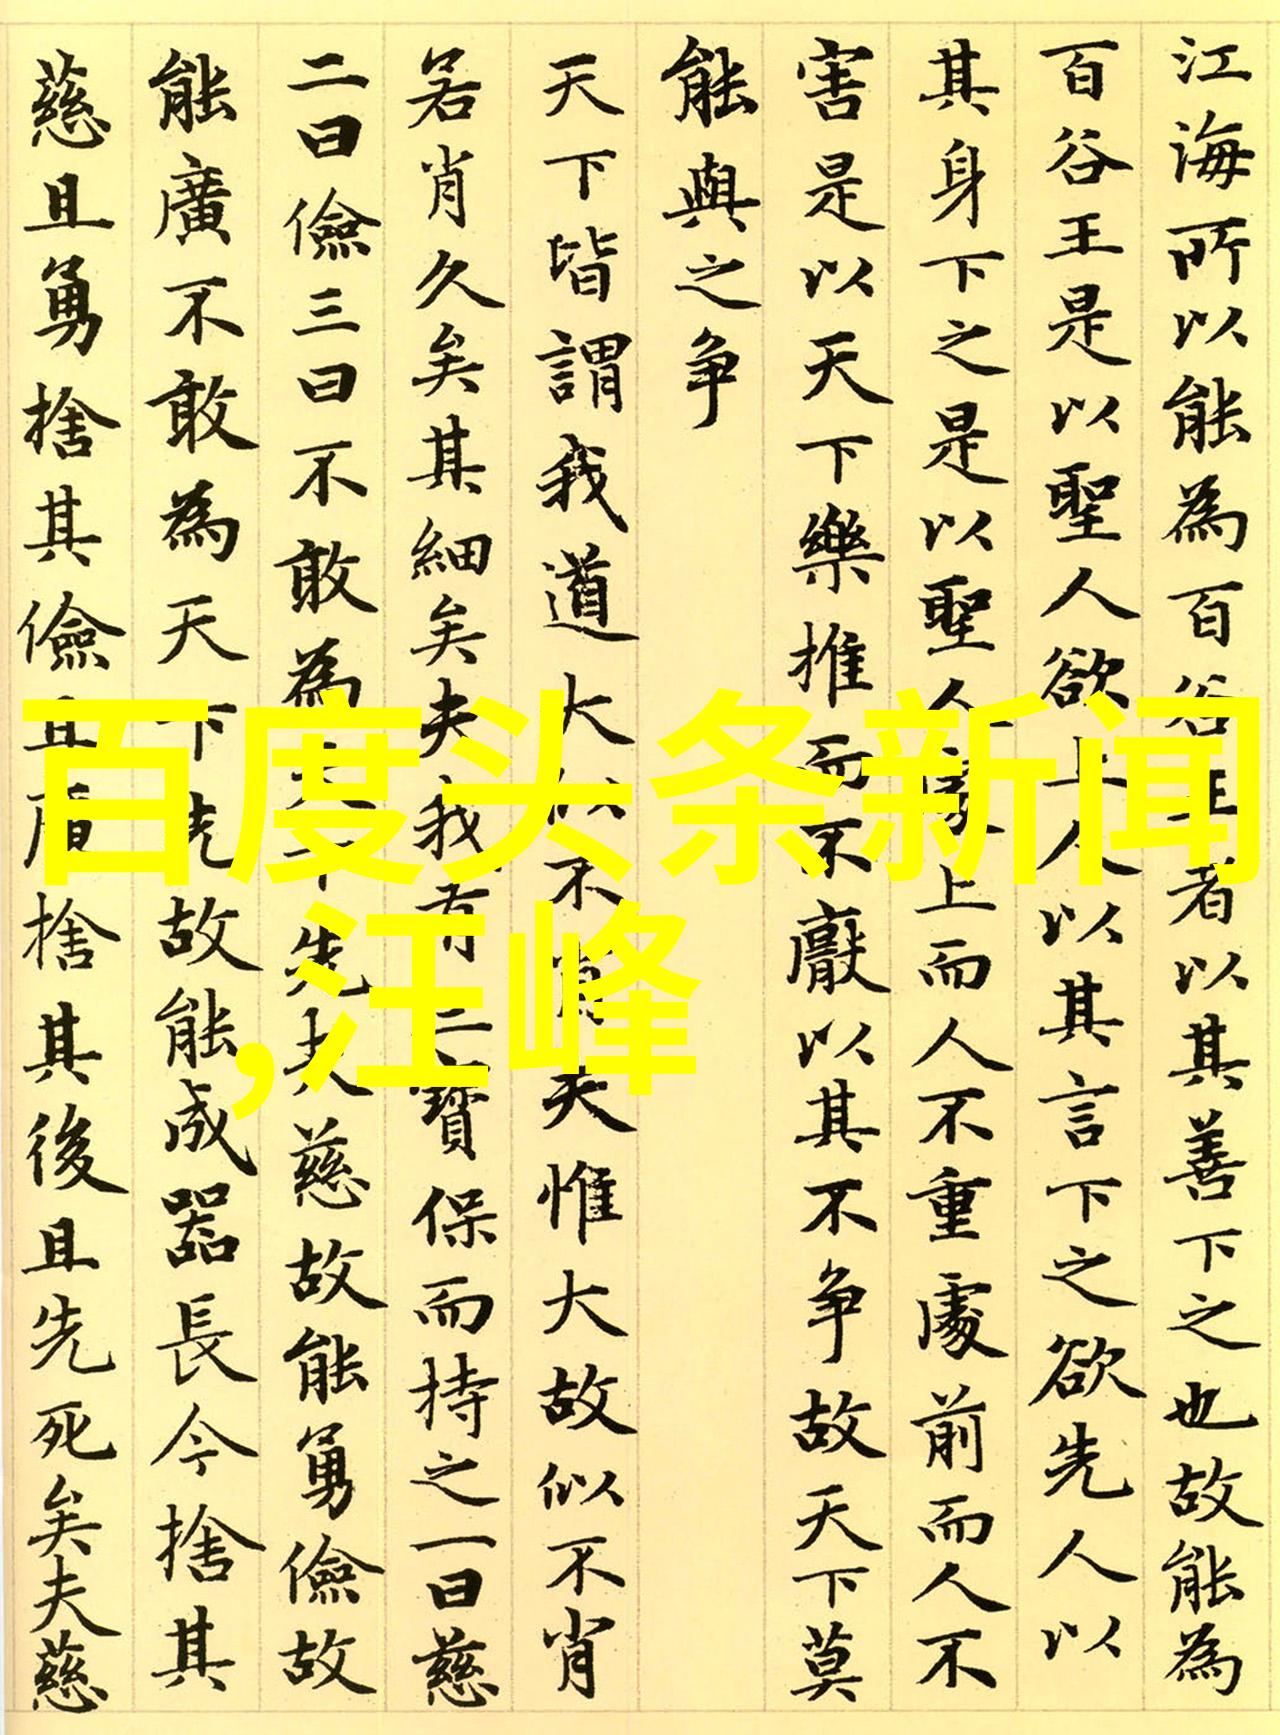 江海所以能為百谷王者以其善下之也故能為
百谷王是以聖人欲上人以其言下之欲先人以
其身下之是以聖人處上而人不重處前而人不
害是以天下樂推而不厭以其不争故天下莫
能與之争
天下皆謂我道大似不肖夫惟大故似不肖
若肖久矣其細矣夫我有三寶保而持之一曰慈
二曰儉三曰不敢為天下先夫慈故能勇儉故
能廣不敢為天下先故能成器長今捨其
慈且勇捨其儉且廣捨其後且先死矣夫慈
百度头条新闻
,汪峰